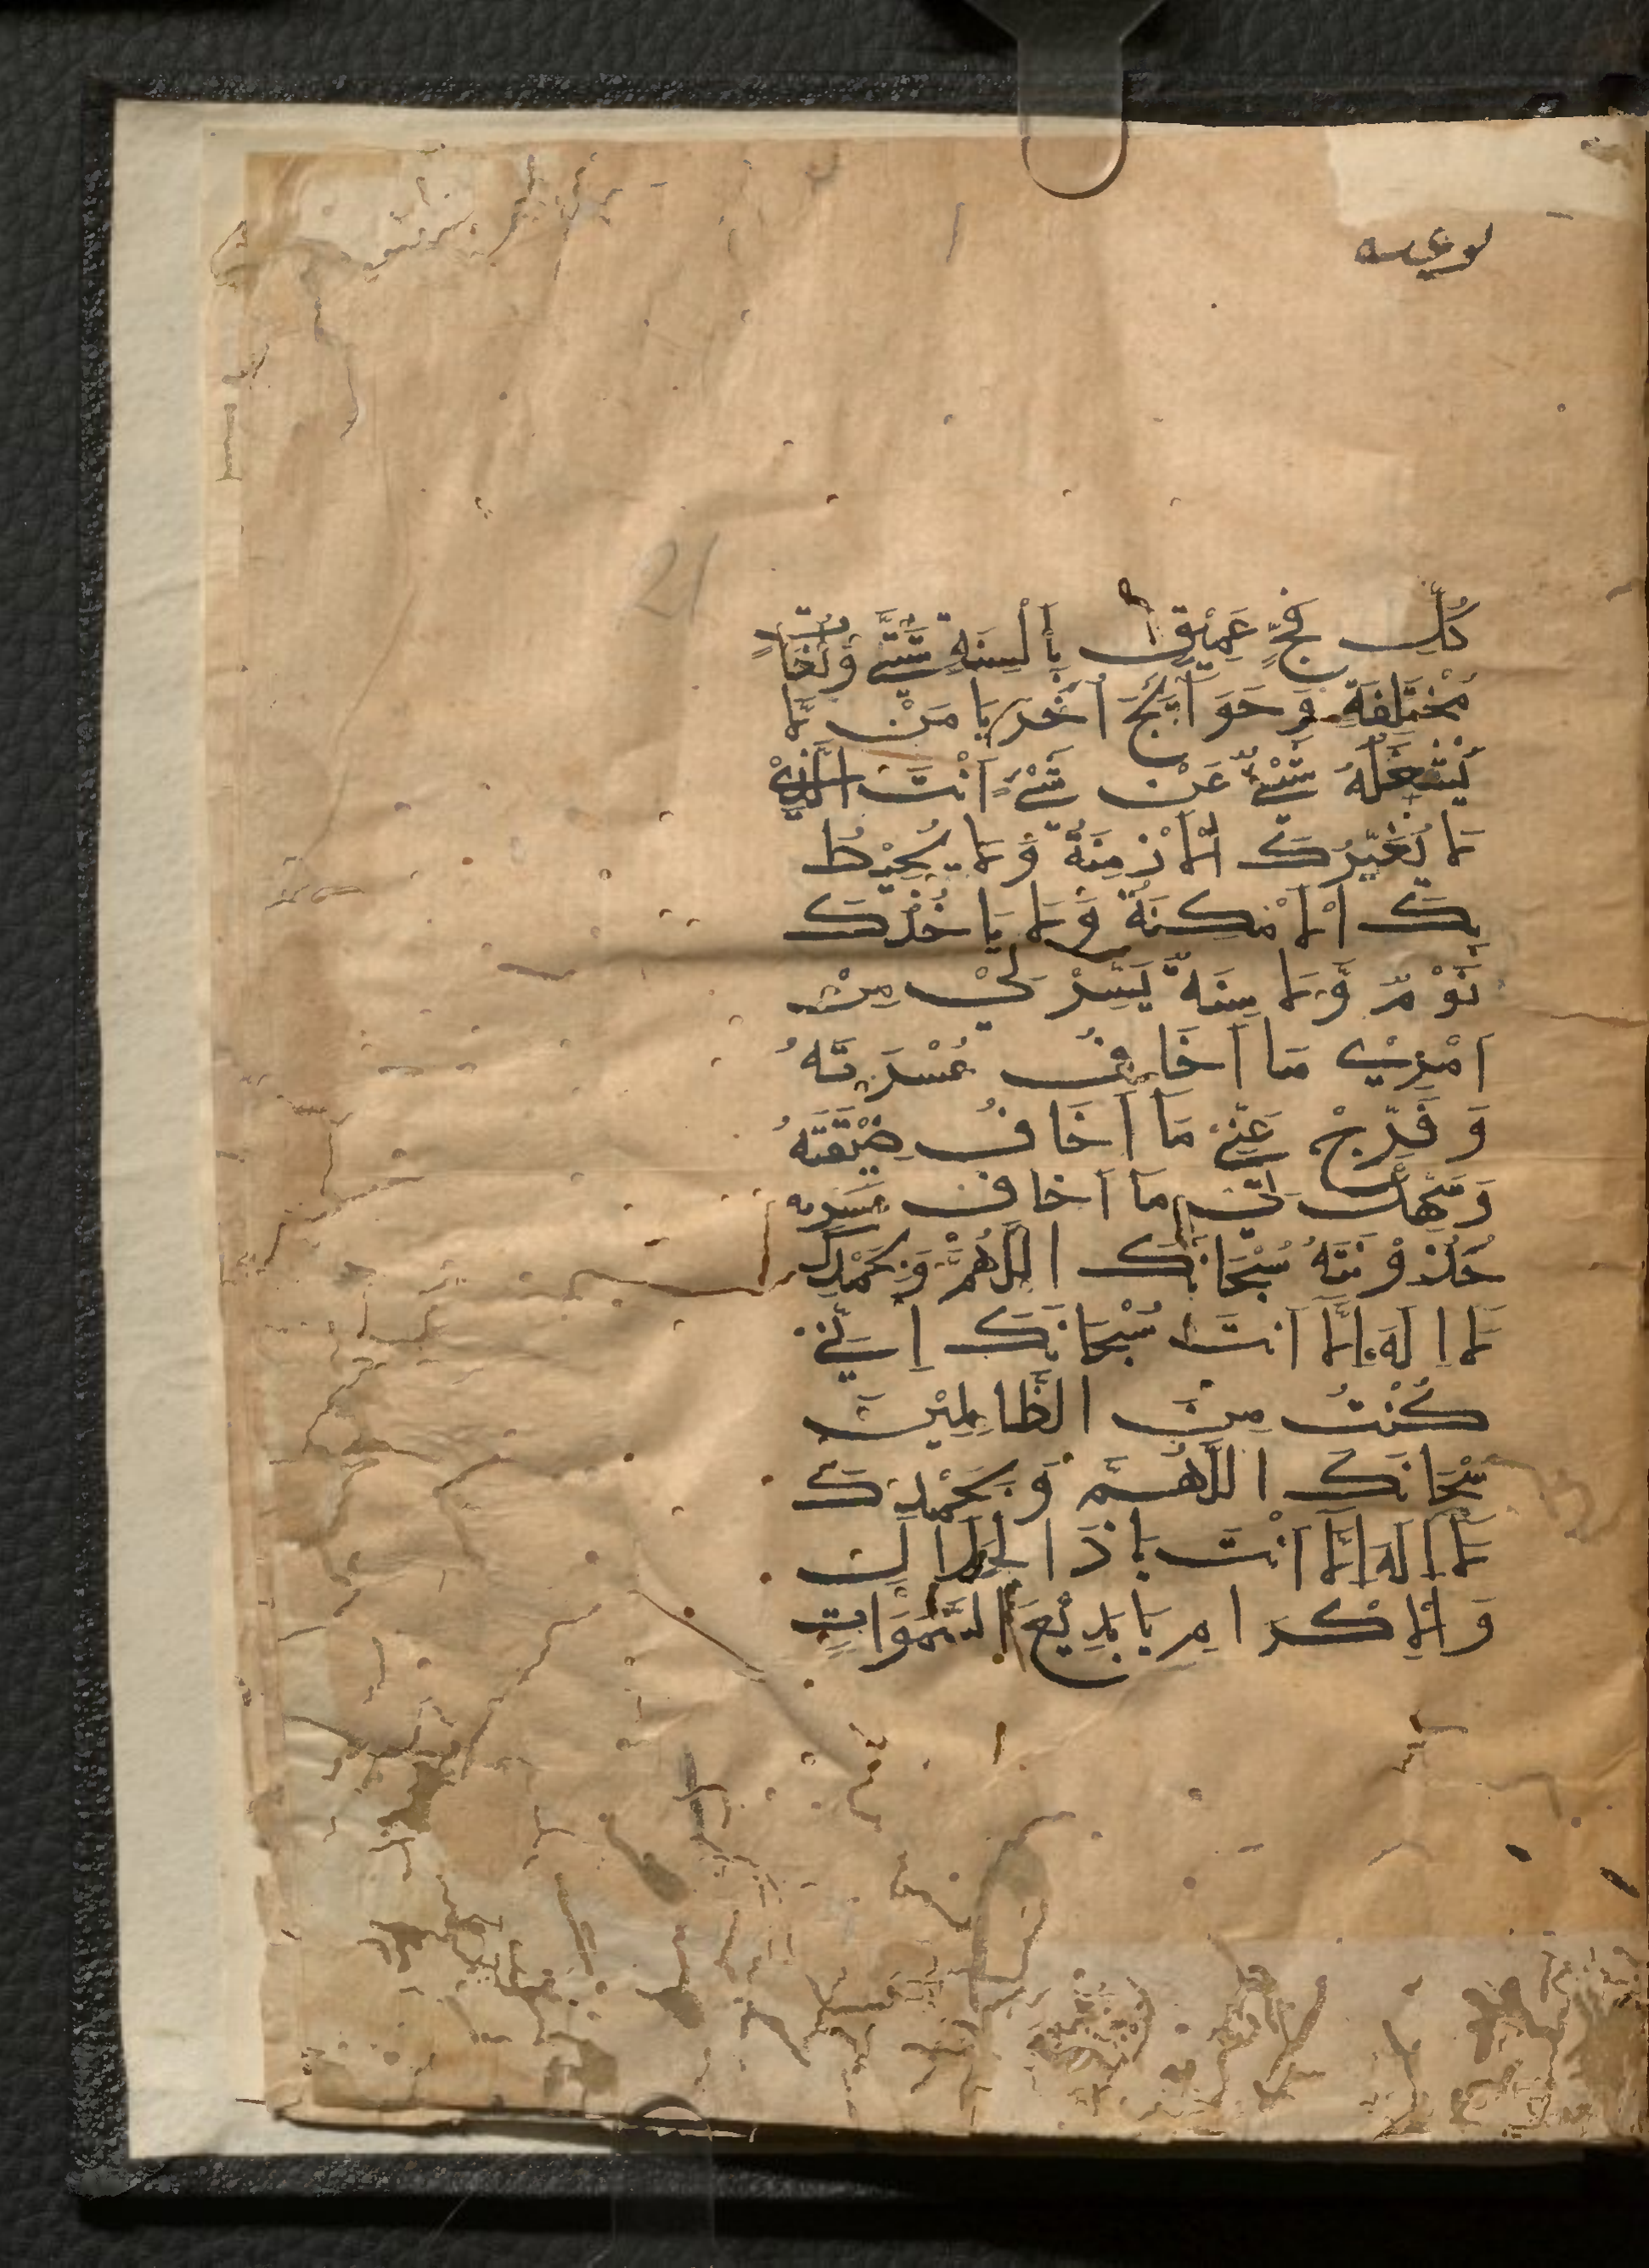 21
كُلِّ فَجٍّ عَمِيْقٍ بِاَلْسِنَةٍ شَتّٰى وَلُغَاتٍ
مُخْتَلِفَةٍ وَحَوَآئِجَ اُخَرَ يَا مَنْ لَّا
يُشْغَلُهُ شَيْءٌ عَنْ شَيْءٍ اَنْتَ الَّذِيْ
لَا يُغَيِّرُكَ الْاَزْمِنَةُ وَلَا يُحِيْطُ
بِكَ الْاَمْكِنَةُ وَلَا يَاخُذُكَ
نَوْمٌ وَّلَا سِنَةٌ يَسِّرْ لِيْ مِنْ
اَمْرِيْ مَا اَخَافُ عُسْرَتَهُ
وَ فَرِّجْ عَنِّيْ مَا اَخَافُ ضِيْقَتَهُ
وَسَهِّلْ لِيْ مَا اَخَافُ
حُذُوْنَتَهُ سُبْحَانَكَ اللّٰهُمَّ وَبِحَمْدِكَ
لَا اِلَهَ اِلَّا اَنْتَ سُبْحَانَكَ اِنِّيْ
كُنْتُ مِنَ الظَّالِمِيْنَ
سُبْحَانَكَ اللّٰهُمَّ وَبِحَمْدِكَ
لَا اِلَهَ اِلَّا اَنْتَ يَا ذَا الْجَلَالِ
وَالْاِكْرَامِ يَا بَدِيْعَ السَّمٰوَاتِ